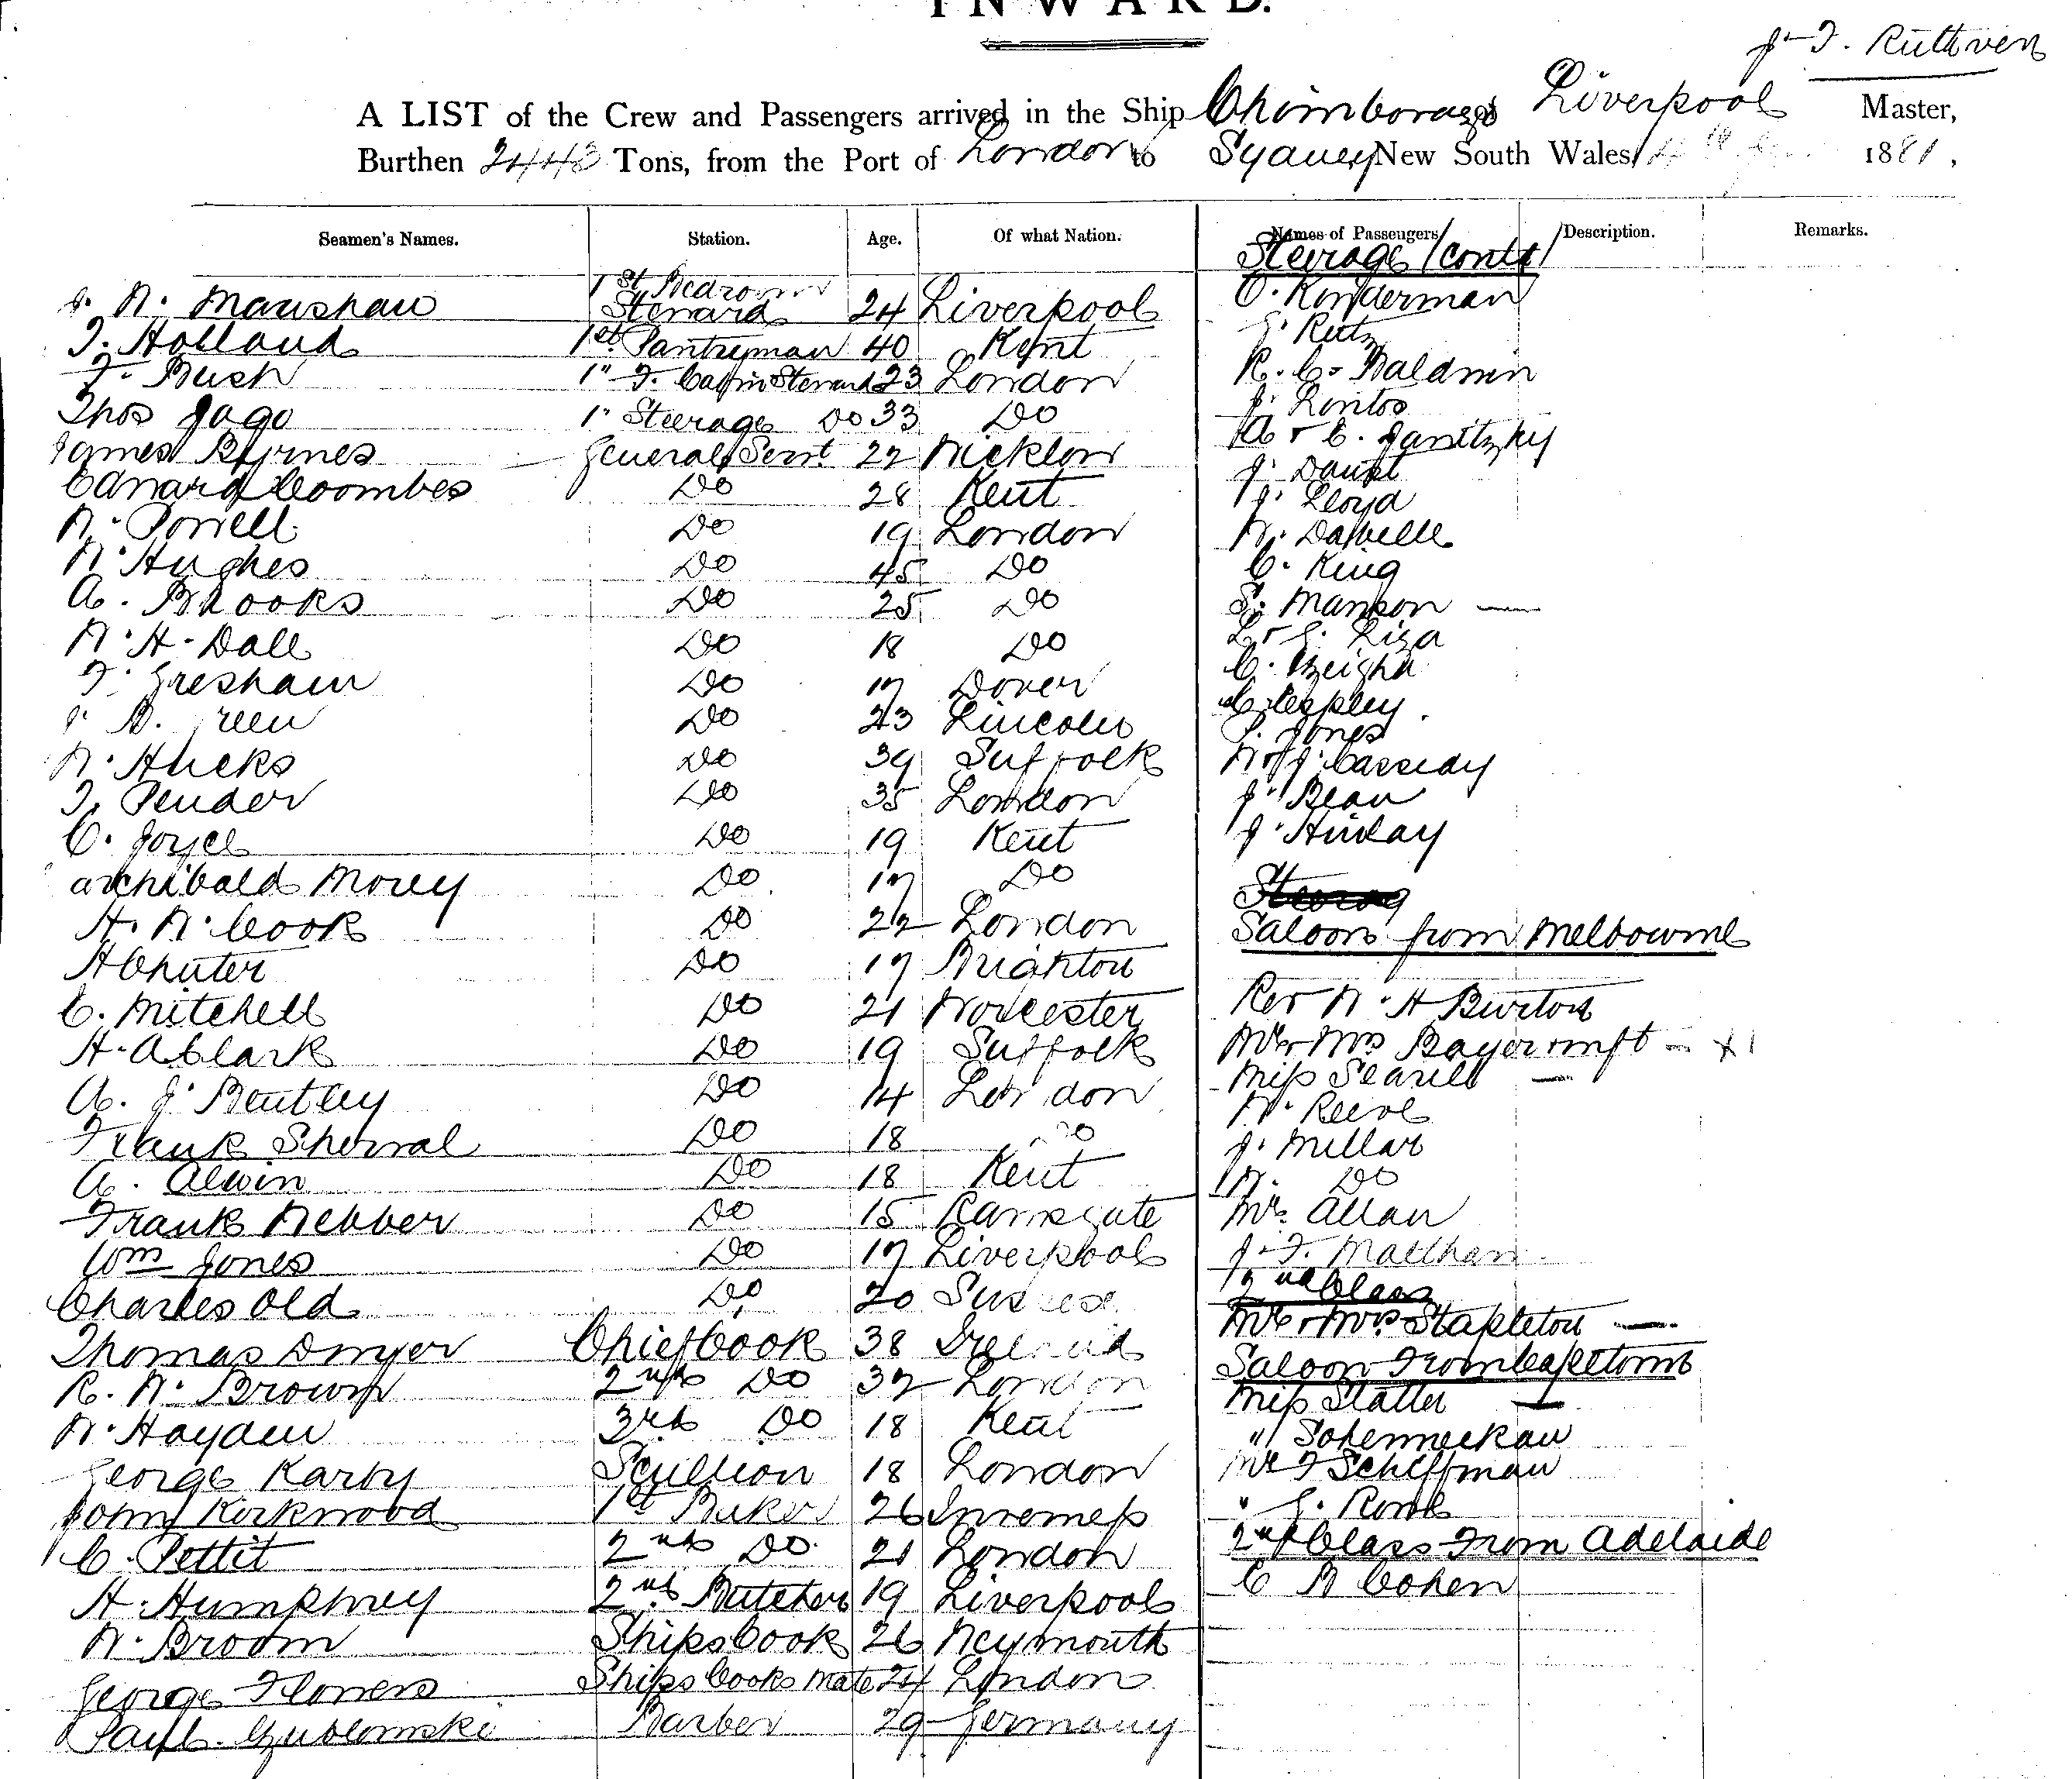 INWARD.
J. F. Ruthven
A LIST of the Crew and Passengers arrived in the Ship Chimborazo Liverpool Master,
Burthen 2443 Tons, from the Port of London to Sydney New South Wales 1881,
Seamen's Names. Station. Age. Of what Nation. Names of Passengers Description. Remarks.
Steerage /contd/
1st Bedroom
W. Manshaw Steward 24 Liverpool C. Kinderman
T. Holland 1st Pantryman 40 Kent Rutz
F. Bush 1" F. Cabin Steward 23 London R. C. Baldwin
Thos Jago 1" Steerage Do 33 Do J. Lontos
James Byrnes General Servt 22 Wicklow A & C. Janitzky
Edward Coombes Do 28 Kent J. Daust
W. Powell Do 19 London J. Lloyd
W. Hughes Do 45 Do W. Dalvelle
A. Brooks Do 25 Do C. King
W. H. Dall Do 18 Do S. Manson
F. Gresham Do 17 Dover L & G. Liza
Green Do 23 Lincoln C.
W. Hucks Do 39 Suffolk Jones
T. Pender Do 35 London W & J. Cassidy
C. Joyce Do 19 Kent J. Bean
Archibald Morey Do 17 Do J. Hinlay
H. W. Cook Do 22 London Saloon from Melbourne
H Chuter Do 17 Brighton
C. Mitchell Do 21 Worcester Rev W. H Burton
H. A Clark Do 19 Suffolk Mr & Mrs Bayer x 1
A. J. Bentley Do 14 London Miss Searell
Frank Sherval Do 18 Do W. Reeve
A. Alwin Do 18 Kent J. Millar
Frank Webber Do 15 Ramsgate W. Do
Wm Jones Do 17 Liverpool Mr. Allan
Charles Old Do 20 Sussex J. F. Matthan
2nd Class
Thomas Dwyer Chief Cook 38 Ireland Mr & Mrs Stapleton
R. W. Brown 2nd Do 32 London Saloon From Capetown
W. Hayden 3rd Do 18 Kent Miss Slatter
George Karby Scullion 18 London " Sohenneckau
John Kirkwood 1st Baker 26 Inverness Mr F Schiffman
C. Pettit 2nd Do. 21 London " G. Rowe
H. Humphrey 2nd Butcher 19 Liverpool 2nd Class From Adelaide
W. Broom Ships Cook 26 Weymouth C B Cohen
George Flowers Ships Cooks Mate 24 London
Paul Barber 29 Germany